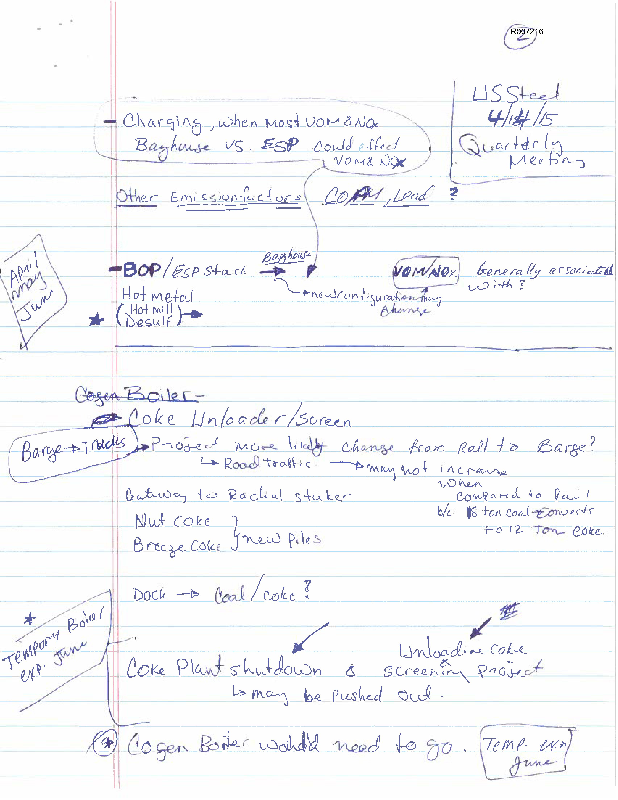 R007216
2
US Steel
4/14/15
Quarterly
Meeting
- Charging, when most VOM & NOx
Baghouse vs. ESP could effect
VOM & NOx
Other Emission factors CO, PM, Lead ?
April
May
Jun
- BOP/ESP Stack → Baghouse
VOM/NOx Generally associated
with?
→ new configuration may
change
Hot metal
* (Hot mill) →
Desulf
Cogen Boiler -
Coke Unloader/Screen
Barge → Trucks
→ Project more likely change from Rail to Barge?
↳ Road traffic → may not increase
when
compared to Rail
b/c 18 ton coal converts
to 12 Ton coke
to Radial staker
Nut coke
Breeze coke } new piles
Dock → Coal/coke?
*
Temporary Boiler
exp. June
Coke Plant shutdown & Unloading coke
screening project
↳ may be pushed out.
* Cogen Boiler would need to go.
Temp. exp
June